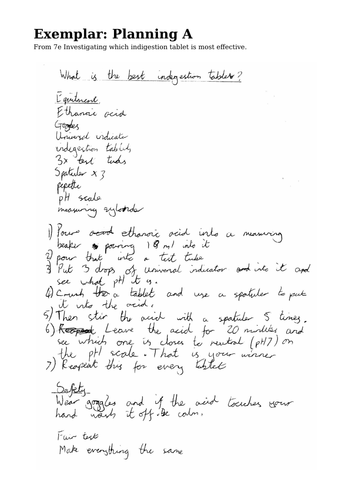 Exemplar: Planning A
From 7e Investigating which indigestion tablet is most effective.
What is the best indegestion tablet?
Equitment
Ethanoic acid
Gogles
Universal indicator
indegestion tablets
3x test tubes
Spatuler x 3
pepette
pH scale
measuring cylonder
1) Pour acid ethanoic acid into a measuring
beaker pouring 10 ml into it
2) pour that into a test tube
3) Put 3 drops of universal indicator and into it and
see what pH it is.
4) Crush the a tablet and use a spatuler to put
it into the acid.
5) Then stir the acid with a spatuler 5 times.
6) Repeat Leave the acid for 20 minutes and
see which one is closes to neutral (pH7) on
the pH scale. That is your winner
7) Repeat this for every tablet
Safety
Wear goggles and if the acid touches your
hand wash it off. Be calm.
Fair test
Make everything the same